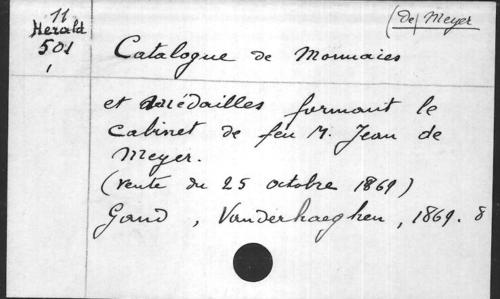 11
Herald
501
1
(de) Meyer
Catalogue de Monnaies
et médailles formant le
Cabinet de feu M. Jean de
Meyer.
(vente du 25 octobre 1869)
Gand, Vanderhaeghen, 1869. 8